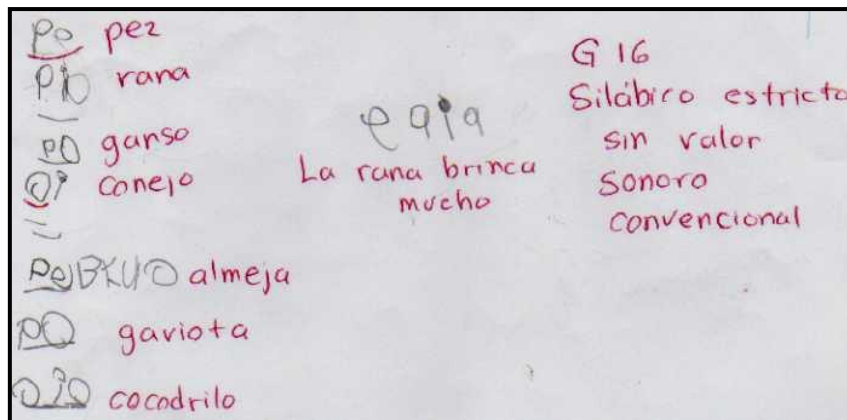 Po pez
PiO rana
PO ganso
Oi conejo
PoJBKUO almeja
PO gaviota
OiO cocodrilo
e a i a
La rana brinca
mucho
G 16
Silábico estricto
sin valor
Sonoro
convencional